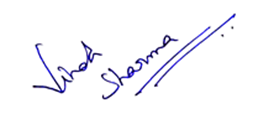 Vinod
Sharma